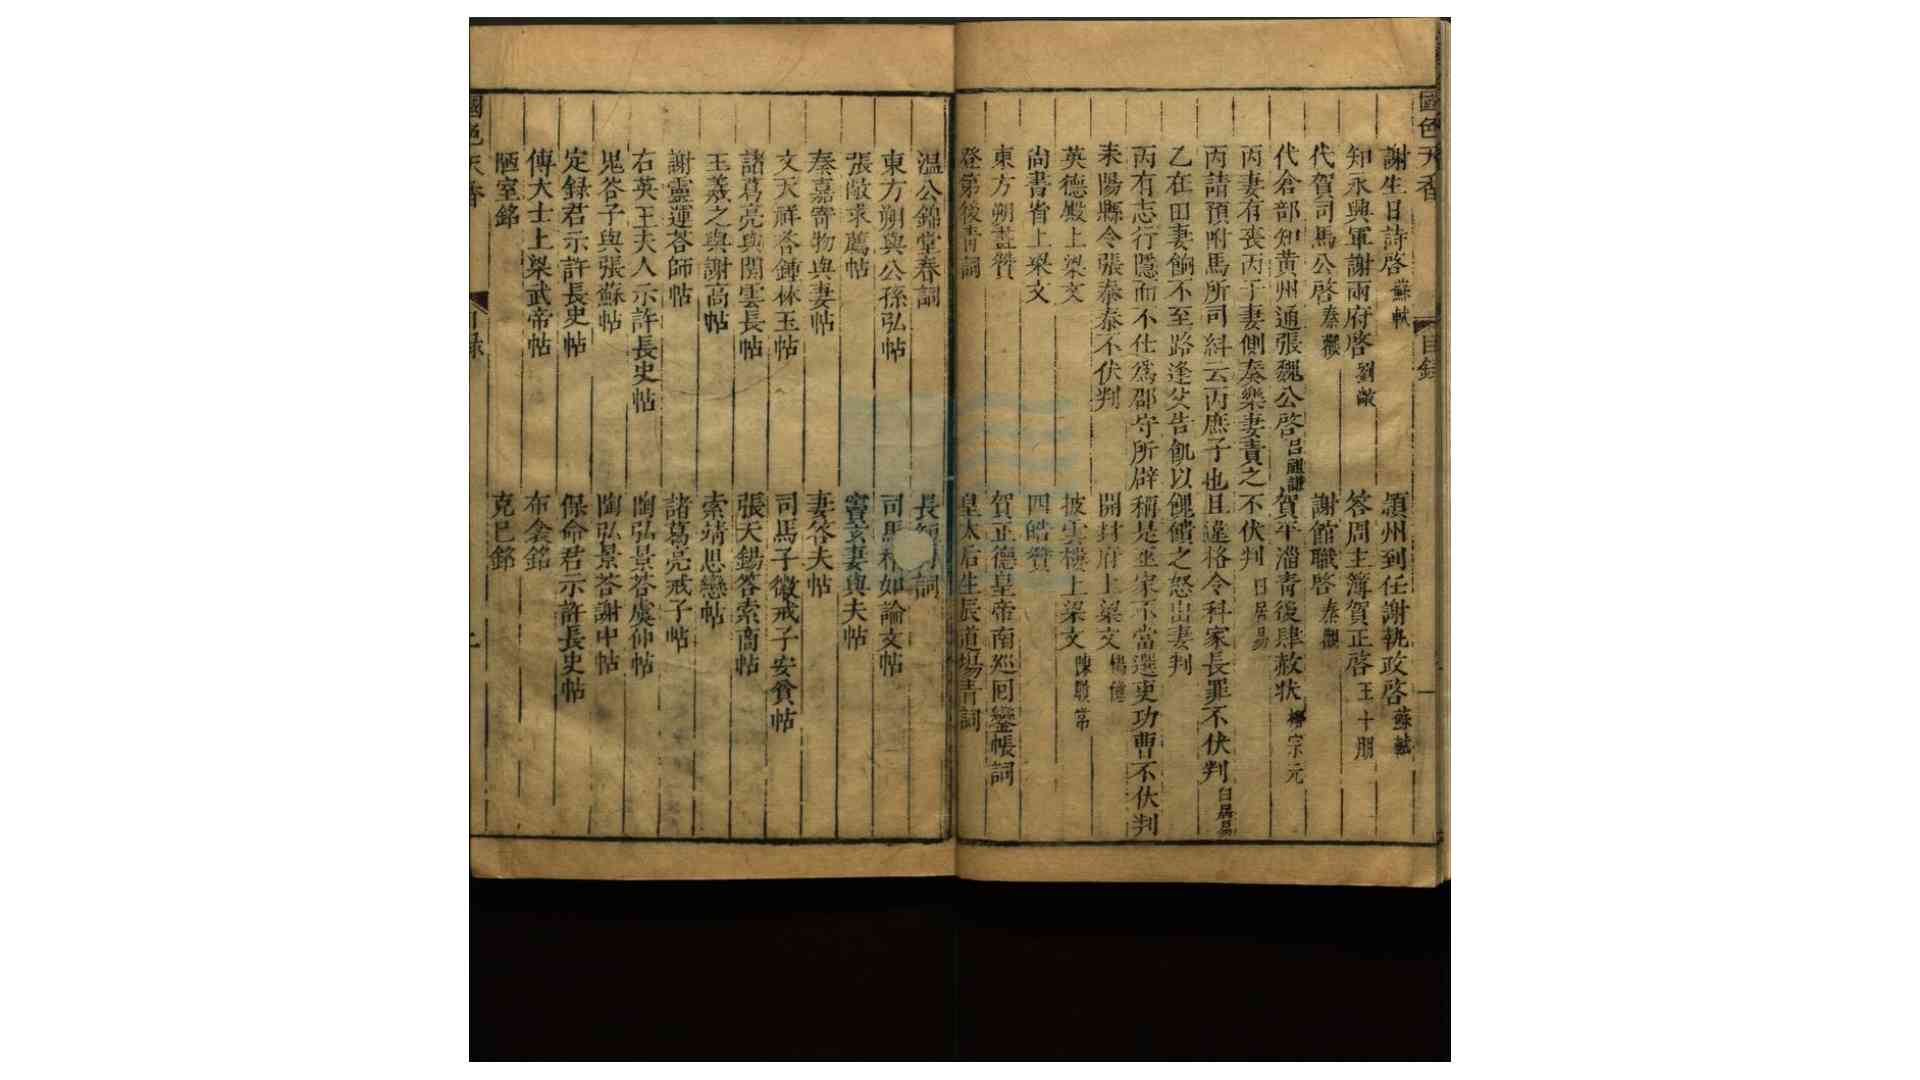 國色天香 目錄 一
謝生日詩啓 蘇軾 潁州到任謝執政啓 蘇軾
知永興軍謝兩府啓 劉敞 答周主簿賀正啓 王十朋
代賀司馬公啓 秦觀 謝館職啓 秦觀
代倉部知黃州通張魏公啓 呂祖謙 賀平淄青後肆赦狀 柳宗元
丙妻有喪丙于妻側奏樂妻責之不伏判 白居易
丙請預附馬所司糾云丙庶子也且違格令科家長罪不伏判 白居易
乙在田妻餉不至路逢父告飢以餽饋之怒出妻判
丙有志行隱而不仕爲郡守所辟稱是巫家不當選吏功曹不伏判
耒陽縣令張泰泰不伏判 開封府上梁文 楊億
英德殿上梁文 披雲樓上梁文 陳
尚書省上梁文 四皓贊
東方朔畫贊 賀正德皇帝南巡回鑾帳詞
登第後青詞 皇太后生辰道場青詞
溫公錦堂春詞 長 詞
東方朔與公孫弘帖 司馬相如論文帖
張敞求薦帖 竇玄妻與夫帖
秦嘉寄物與妻帖 妻答夫帖
文天祥答鍾林玉帖 司馬子徵戒子安貧帖
諸葛亮與關雲長帖 張天錫答索商帖
王羲之與謝高帖 索靖思戀帖
謝靈運答師帖 諸葛亮戒子帖
右英王夫人示許長史帖 陶弘景答虞仲帖
鬼答子與張蘇帖 陶弘景答謝中帖
定録君示許長史帖 保命君示許長史帖
傅大士上梁武帝帖 布衾銘
陋室銘 克己銘
國色天香 目錄